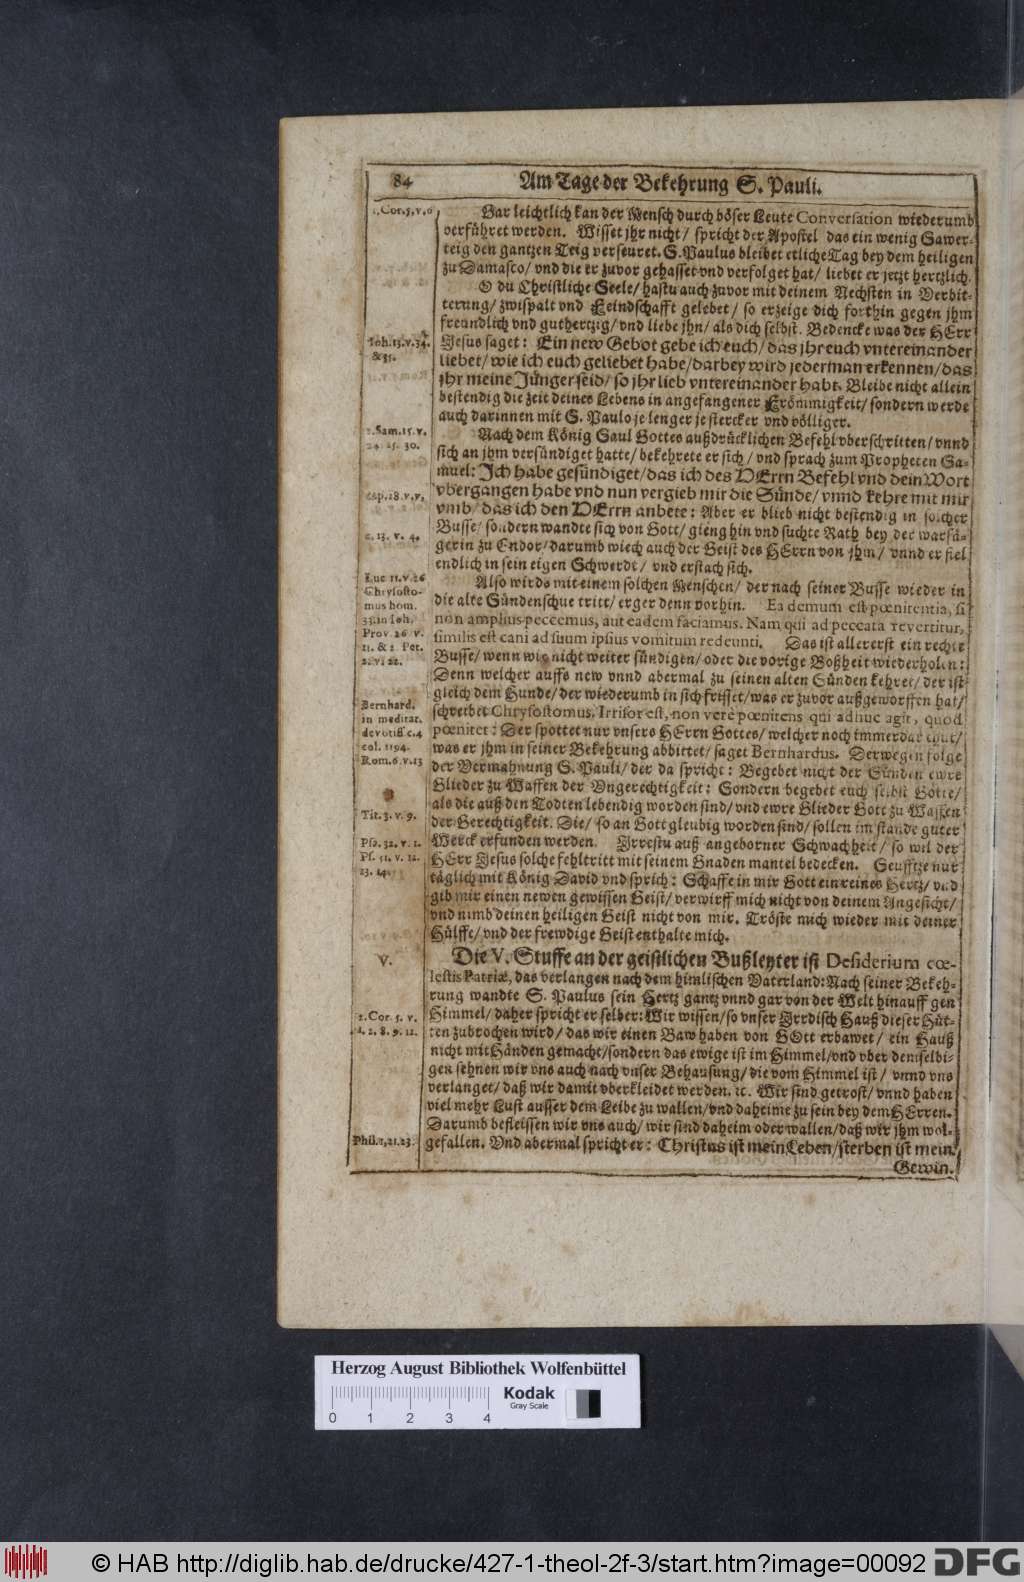 84
Am Tage der Bekehrung S. Pauli.
1. Cor. 5. v. 6
Gar leichtlich kan der Mensch durch böser Leute Conversation wiederumb
verführet werden. Wisset jhr nicht/ spricht der Apostel das ein wenig Sawer-
teig den gantzen Teig verseuret. S. Paulus bleibet etliche Tag bey dem heiligen
zu Damasco/ vnd die er zuvor gehasset vnd verfolget hat/ liebet er jetzt hertzlich.
O du Christliche Seele/ hastu auch zuvor mit deinem Nechsten in Verbit-
terung/ zwispalt vnd Feindschafft gelebet/ so erzeige dich forthin gegen jhm
freundlich vnd guthertzig/ vnd liebe jhn/ als dich selbst. Bedencke was der HErr
Joh. 13. v. 34.
& 35.
Jesus saget: Ein new Gebot gebe ich euch/ das jhr euch vntereinander
liebet/ wie ich euch geliebet habe/ darbey wird jederman erkennen/ das
jhr meine Jünger seid/ so jhr lieb vntereinander habt. Bleibe nicht allein
bestendig die zeit deines Lebens in angefangener Frömmigkeit/ sondern werde
auch darinnen mit S. Paulo je lenger je stercker vnd völliger.
1. Sam. 15. v.
24. 25. 30.
Nach dem König Saul Gottes außdrücklichen Befehl vberschritten/ vnnd
sich an jhm versündiget hatte/ bekehrete er sich/ vnd sprach zum Propheten Sa-
muel: Ich habe gesündiget/ das ich des HErrn Befehl vnd dein Wort
cap. 28. v. 7.
vbergangen habe vnd nun vergieb mir die Sünde/ vnnd kehre mit mir
vmb/ das ich den HErrn anbete: Aber er blieb nicht bestendig in solcher
c. 13. v. 4.
Busse/ sondern wandte sich von Gott/ gieng hin vnd suchte Rath bey der warsä-
gerin zu Endor/ darumb wiech auch der Geist des HErrn von jhm/ vnnd er fiel
endlich in sein eigen Schwerdt/ vnd erstach sich.
Luc. 11. v. 26
Chrysosto-
mus hom.
33. in Joh.
Prov. 26. v.
11. & 2. Pet.
2. v. 22.
Also wirds mit einem solchen Menschen/ der nach seiner Busse wieder in
die alte Sündenschue tritt/ erger denn vorhin. Ea demum est pœnitentia, si
non amplius peccemus, aut eadem faciamus. Nam qui ad peccata revertitur,
similis est cani ad suum ipsius vomitum redeunti. Das ist allererst ein rechte
Busse/ wenn wir nicht weiter sündigen/ oder die vorige Boßheit wiederholen:
Denn welcher auffs new vnnd abermal zu seinen alten Sünden kehret/ der ist
gleich dem Hunde/ der wiederumb in sich frisset/ was er zuvor außgeworffen hat/
Bernhard.
in meditat.
devotiss. c. 4
col. 1194.
Rom. 6. v. 13
schreibet Chrysostomus. Irrisor est, non verè pœnitens qui adhuc agit, quod
pœnitet: Der spottet nur vnsers HErrn Gottes/ welcher noch immerdar thut/
was er jhm in seiner Bekehrung abbittet/ saget Bernhardus. Derwegen folge
der Vermahnung S. Pauli/ der da spricht: Begebet nicht der Sünden ewre
Glieder zu Waffen der Vngerechtigkeit: Sondern begebet euch selbst Gotte/
als die auß den Todten lebendig worden sind/ vnd ewre Glieder Gott zu Waffen
Tit. 3. v. 8.
der Gerechtigkeit. Die/ so an Gott gleubig worden sind/ sollen im stande guter
Psa. 32. v. 1.
Ps. 51. v. 12.
13. 14.
Werck erfunden werden. Irrestu auß angeborner Schwachheit/ so wil der
HErr Jesus solche fehltritt mit seinem Gnaden mantel bedecken. Seufftze nur
täglich mit König David vnd sprich: Schaffe in mir Gott ein reines Hertz/ vnd
gib mir einen newen gewissen Geist/ verwirff mich nicht von deinem Angesicht/
vnd nimb deinen heiligen Geist nicht von mir. Tröste mich wieder mit deiner
Hülffe/ vnd der frewdige Geist enthalte mich.
V.
Die V. Stuffe an der geistlichen Bußleyter ist Desiderium cœ-
lestis Patriæ, das verlangen nach dem himlischen Vaterland: Nach seiner Bekeh-
rung wandte S. Paulus sein Hertz gantz vnnd gar von der Welt hinauff gen
2. Cor. 5. v.
1. 2. 8. 9. 12.
Himmel/ daher spricht er selber: Wir wissen/ so vnser Irrdisch Hauß dieser Hüt-
ten zubrochen wird/ das wir einen Baw haben von GOtt erbawet/ ein Hauß
nicht mit Händen gemacht/ sondern das ewige ist im Himmel/ vnd vber demselbi-
gen sehnen wir vns auch nach vnser Behausung/ die vom Himmel ist/ vnnd vns
verlanget/ daß wir damit vberkleidet werden. ꝛc. Wir sind getrost/ vnnd haben
viel mehr Lust ausser dem Leibe zu wallen/ vnd daheime zu sein bey dem HErren.
Darumb befleissen wir vns auch/ wir sind daheim oder wallen/ daß wir jhm wol-
Phil. 1, 21. 23.
gefallen. Vnd abermal spricht er: Christus ist mein Leben/ sterben ist mein
Gewin.
Herzog August Bibliothek Wolfenbüttel
0 1 2 3 4
Kodak
Gray Scale
© HAB http://diglib.hab.de/drucke/427-1-theol-2f-3/start.htm?image=00092
DFG